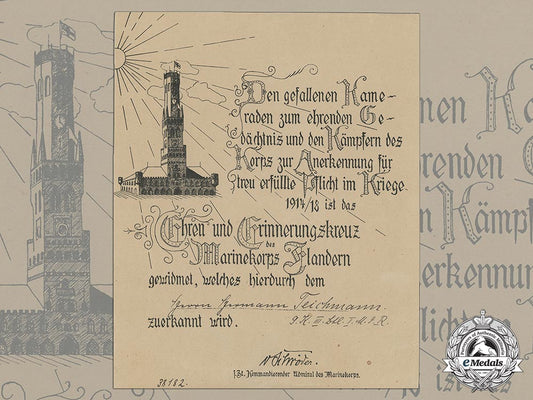 Den gefallenen Kame-
raden zum ehrenden Ge-
dächtnis und den Kämpfern des
Korps zur Anerkennung für
treu erfüllte Pflicht im Kriege
1914/18 ist das
Ehren und Erinnerungskreuz
des
Marinekorps Flandern
gewidmet, welches hierdurch dem
Herrn Hermann Teichmann
zuerkannt wird.
v Schröder
I.Zt. Kommandierender Admiral des Marinekorps.
38182.
eMedals